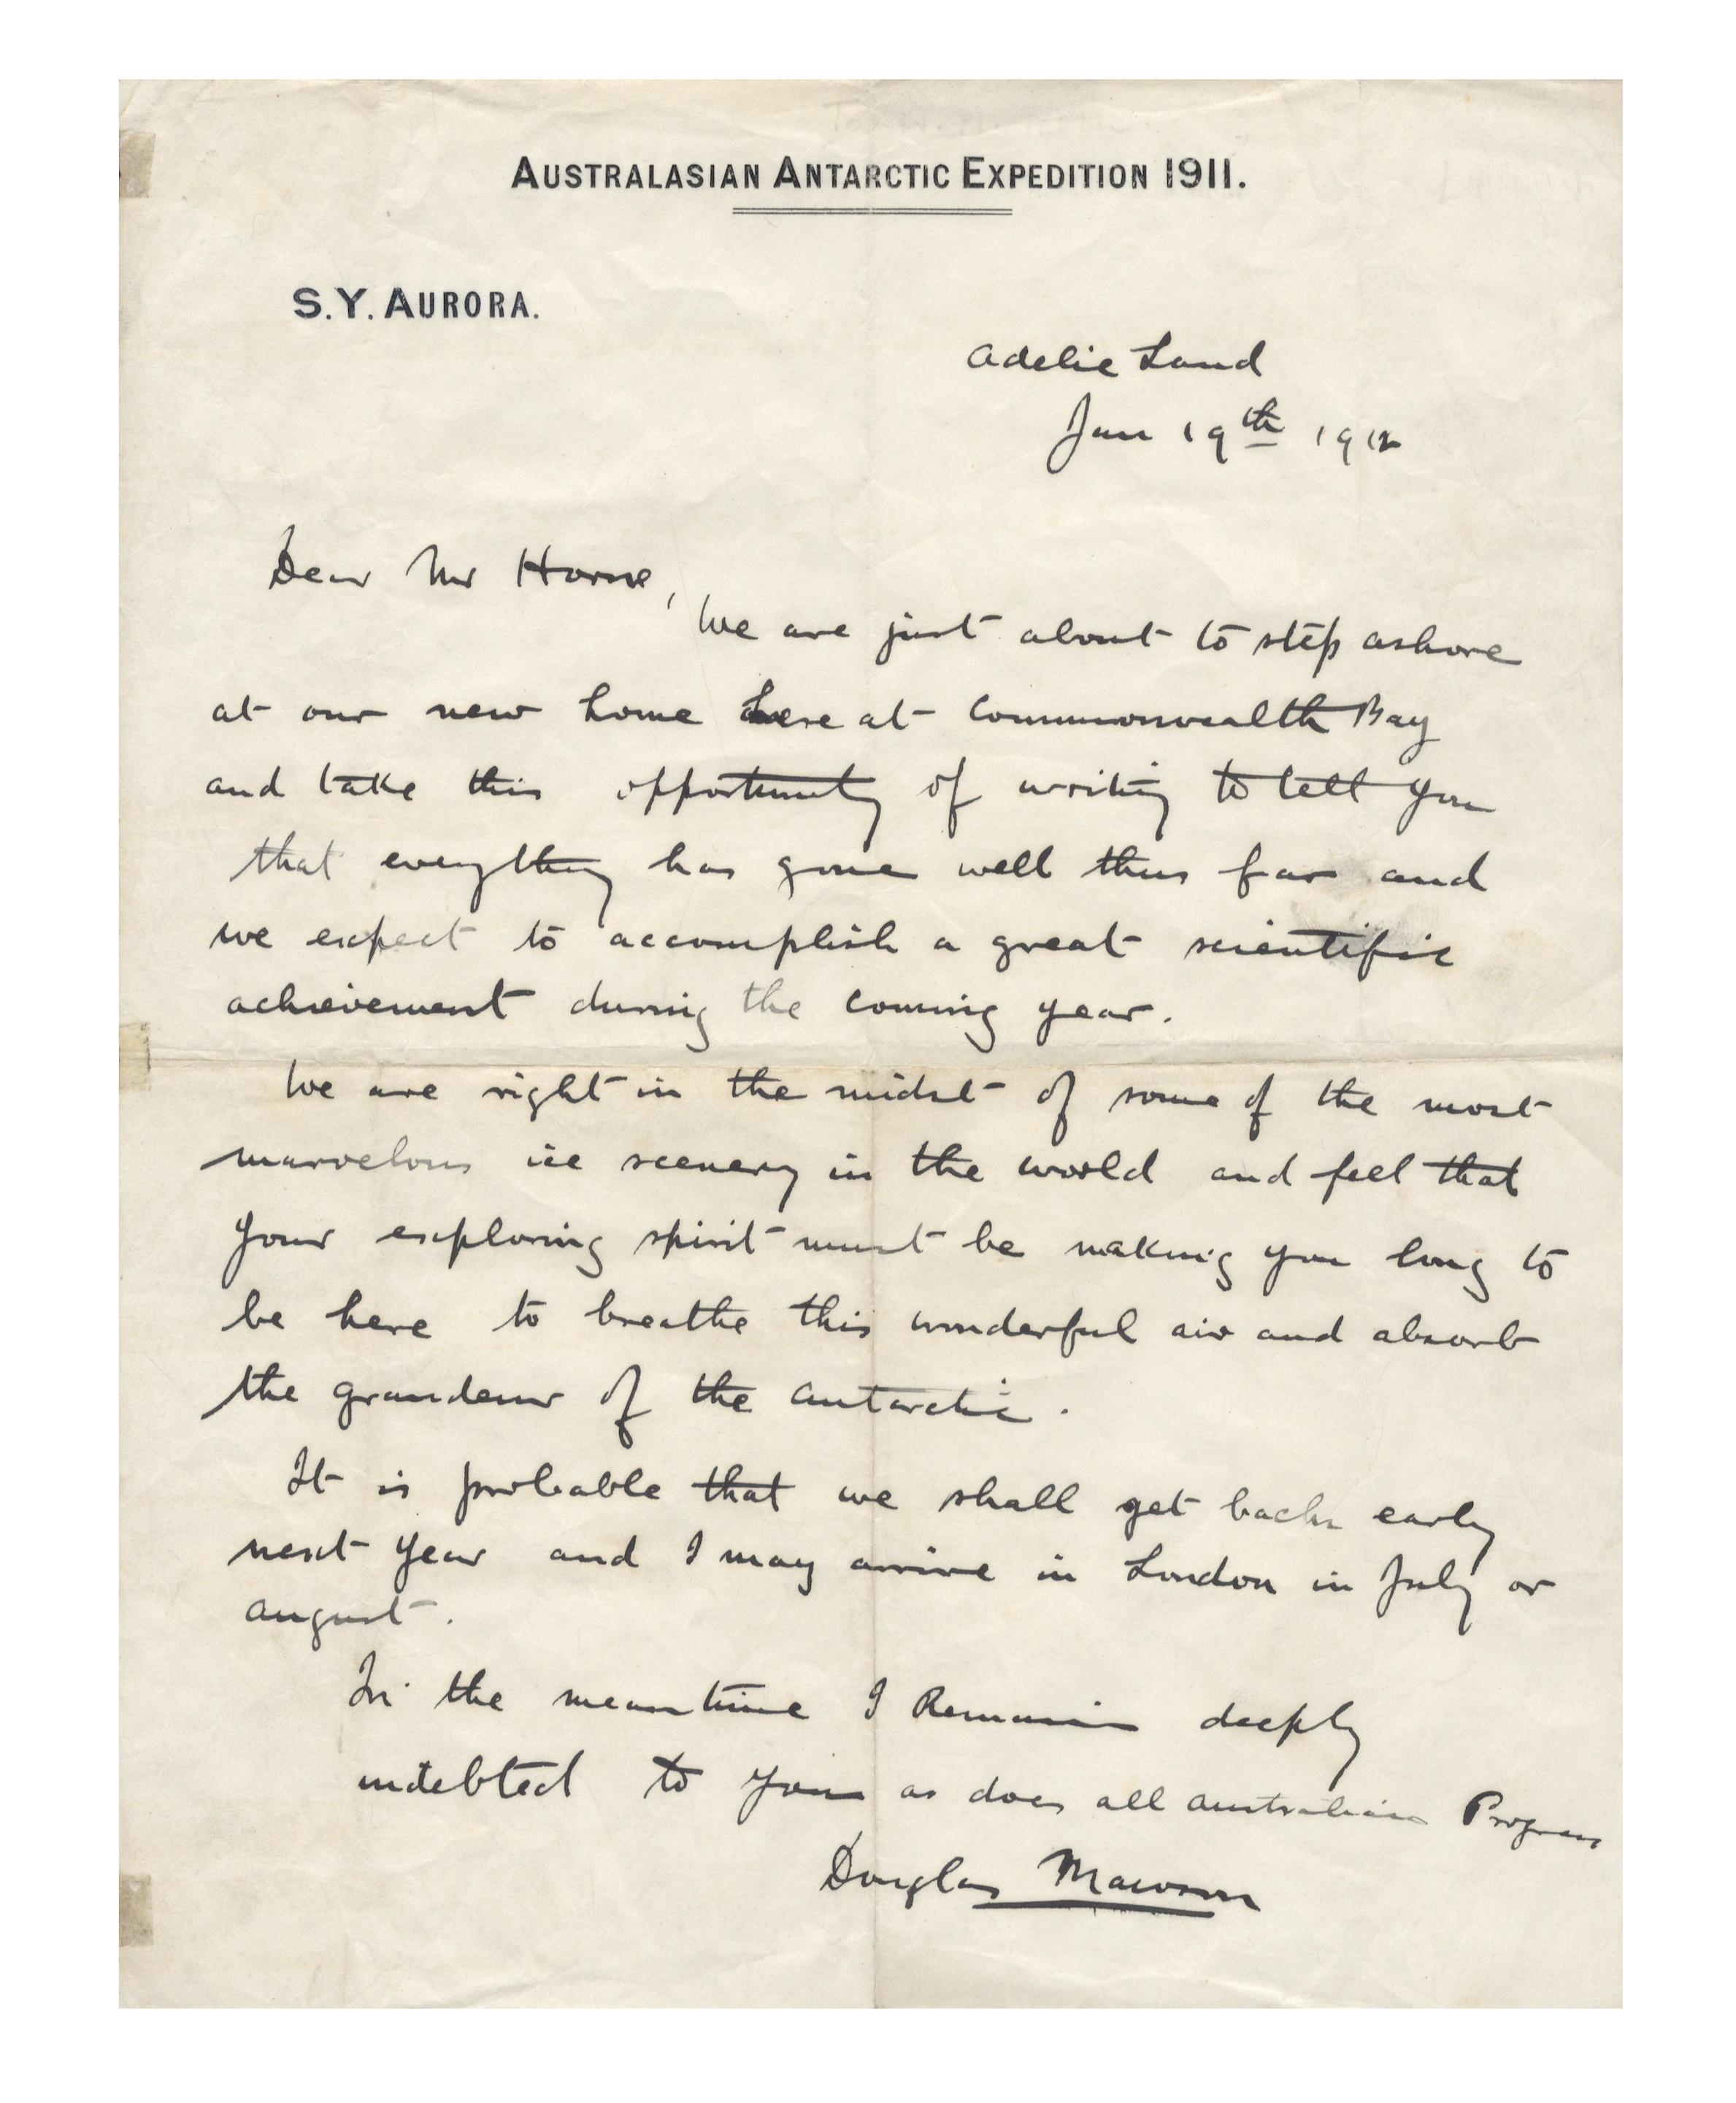 AUSTRALASIAN ANTARCTIC EXPEDITION 1911.
S.Y. AURORA.
Adelie Land
Jan 19th 1912
Dear Mr Horne,
We are just about to step ashore
at our new home here at Commonwealth Bay
and take this opportunity of writing to tell you
that everything has gone well thus far and
we expect to accomplish a great scientific
achievement during the coming year.
We are right in the midst of some of the most
marvelous ice scenery in the world and feel that
your exploring spirit must be making you long to
be here to breathe this wonderful air and absorb
the grandeur of the Antarctic.
It is probable that we shall get back early
next year and I may arrive in London in July or
August.
In the meantime I Remain deeply
indebted to you as does all Australian Progress
Douglas Mawson